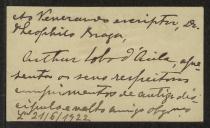 Ao Venerando escriptor, Dr.
Theophilo Braga,
Arthur Lobo d'Avila, apre-
senta os seus respeitosos
cumprimentos de antigo dis-
cipulo e velho amigo obg.mo
21/6/1922